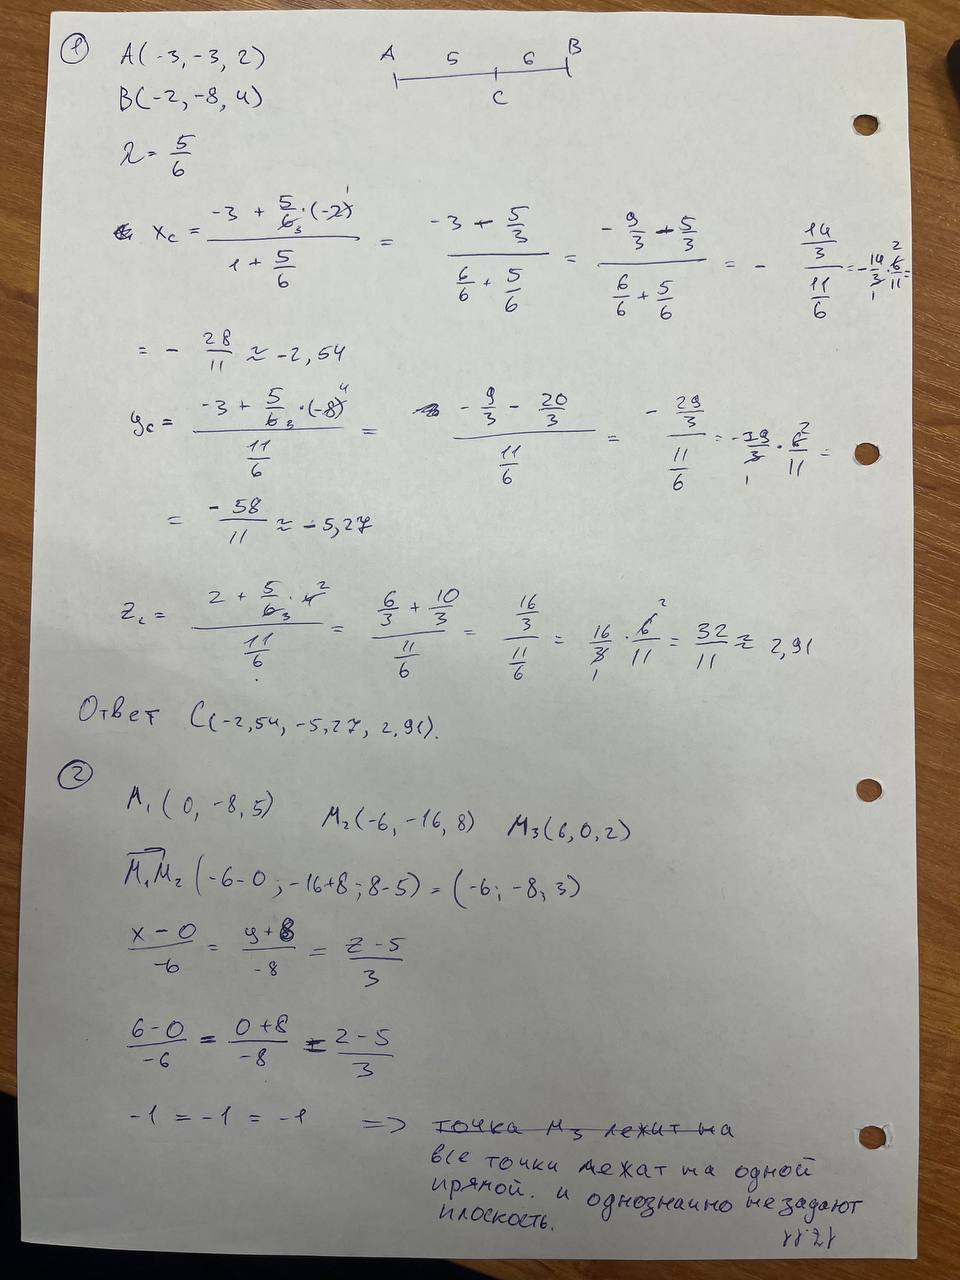 1
A(-3, -3, 2)
A 5 6 B
C
B(-2, -8, 4)
λ = 5/6
x_c = (-3 + 5/6 · (-2))/(1 + 5/6) = (-3 - 5/3)/(6/6 + 5/6) = (-9/3 - 5/3)/(6/6 + 5/6) = - (14/3)/(11/6) = -14/3 · 6/11 =
= - 28/11 ≈ -2,54
y_c = (-3 + 5/6 · (-8))/(11/6) = (-9/3 - 20/3)/(11/6) = - (29/3)/(11/6) = -29/3 · 6/11 =
= -58/11 ≈ -5,27
z_c = (2 + 5/6 · 4)/(11/6) = (6/3 + 10/3)/(11/6) = (16/3)/(11/6) = 16/3 · 6/11 = 32/11 ≈ 2,91
Ответ C(-2,54, -5,27, 2,91).
2
M₁(0, -8, 5) M₂(-6, -16, 8) M₃(6, 0, 2)
M₁M₂ (-6-0; -16+8; 8-5) = (-6; -8, 3)
(x-0)/-6 = (y+8)/-8 = (z-5)/3
(6-0)/-6 = (0+8)/-8 = (2-5)/3
-1 = -1 = -1 => точка M₃ лежит на
все точки лежат на одной
прямой. и однозначно не задают
плоскость.